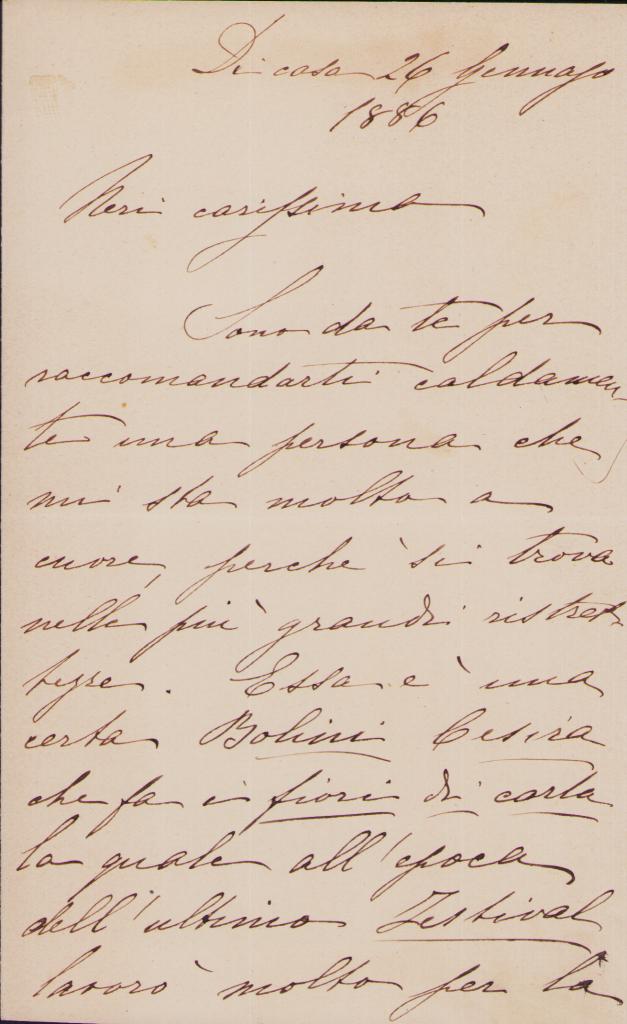 Di casa 26 Gennajo
1886
Neri carissima
Sono da te per
raccomandarti caldamen-
te una persona che
mi sta molto a
cuore, perchè si trova
nelle più grandi ristret-
tezze. Essa è una
certa Bolini Cesira
che fa i fiori di carta
la quale all'epoca
dell'ultimo Festival
lavorò molto per la